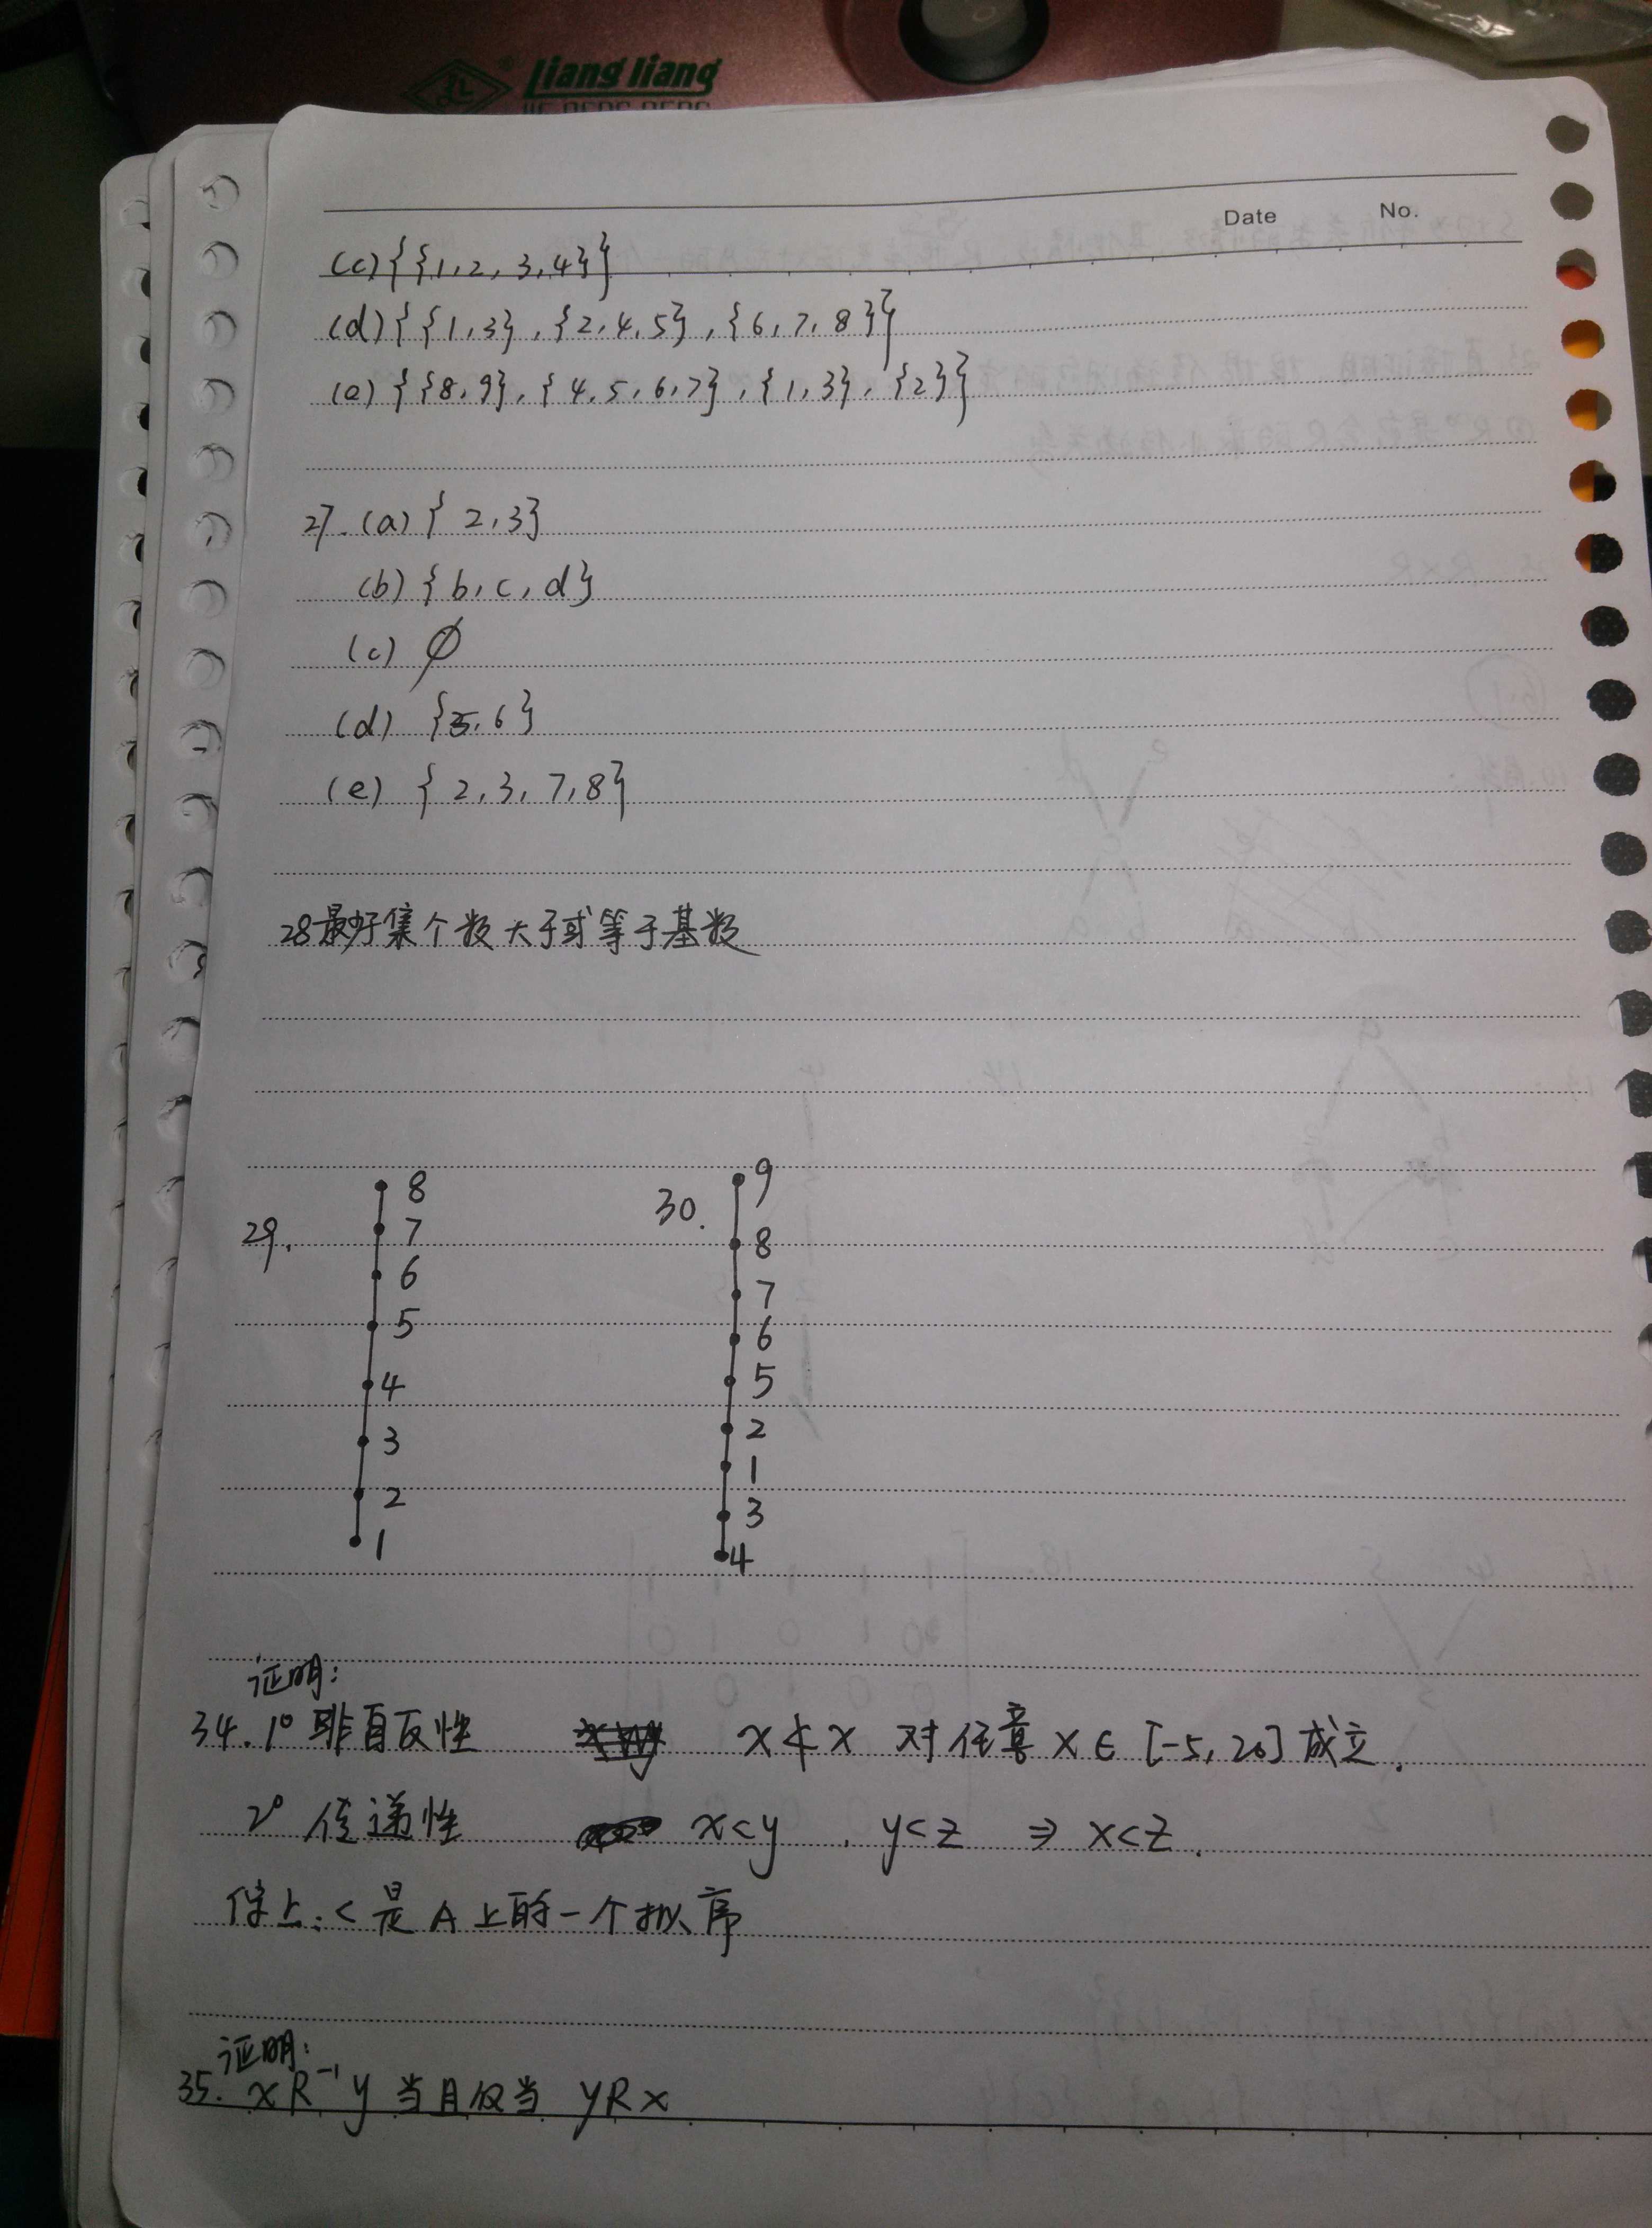 Liang liang
Date No.
(c) { {1, 2, 3, 4} }
(d) { {1, 3}, {2, 4, 5}, {6, 7, 8} }
(e) { {8, 9}, {4, 5, 6, 7}, {1, 3}, {2} }
27. (a) { 2, 3 }
(b) { b, c, d }
(c) ∅
(d) {5, 6}
(e) { 2, 3, 7, 8 }
28 最好集个数大于或等于基数
29.
8
7
6
5
4
3
2
1
30.
9
8
7
6
5
2
1
3
4
证明:
34. 1° 非自反性 x≮x 对任意 x∈[-5, 20] 成立.
2° 传递性 x<y , y<z ⇒ x<z.
综上: < 是 A 上的一个拟序
证明:
35. xR⁻¹y 当且仅当 yRx